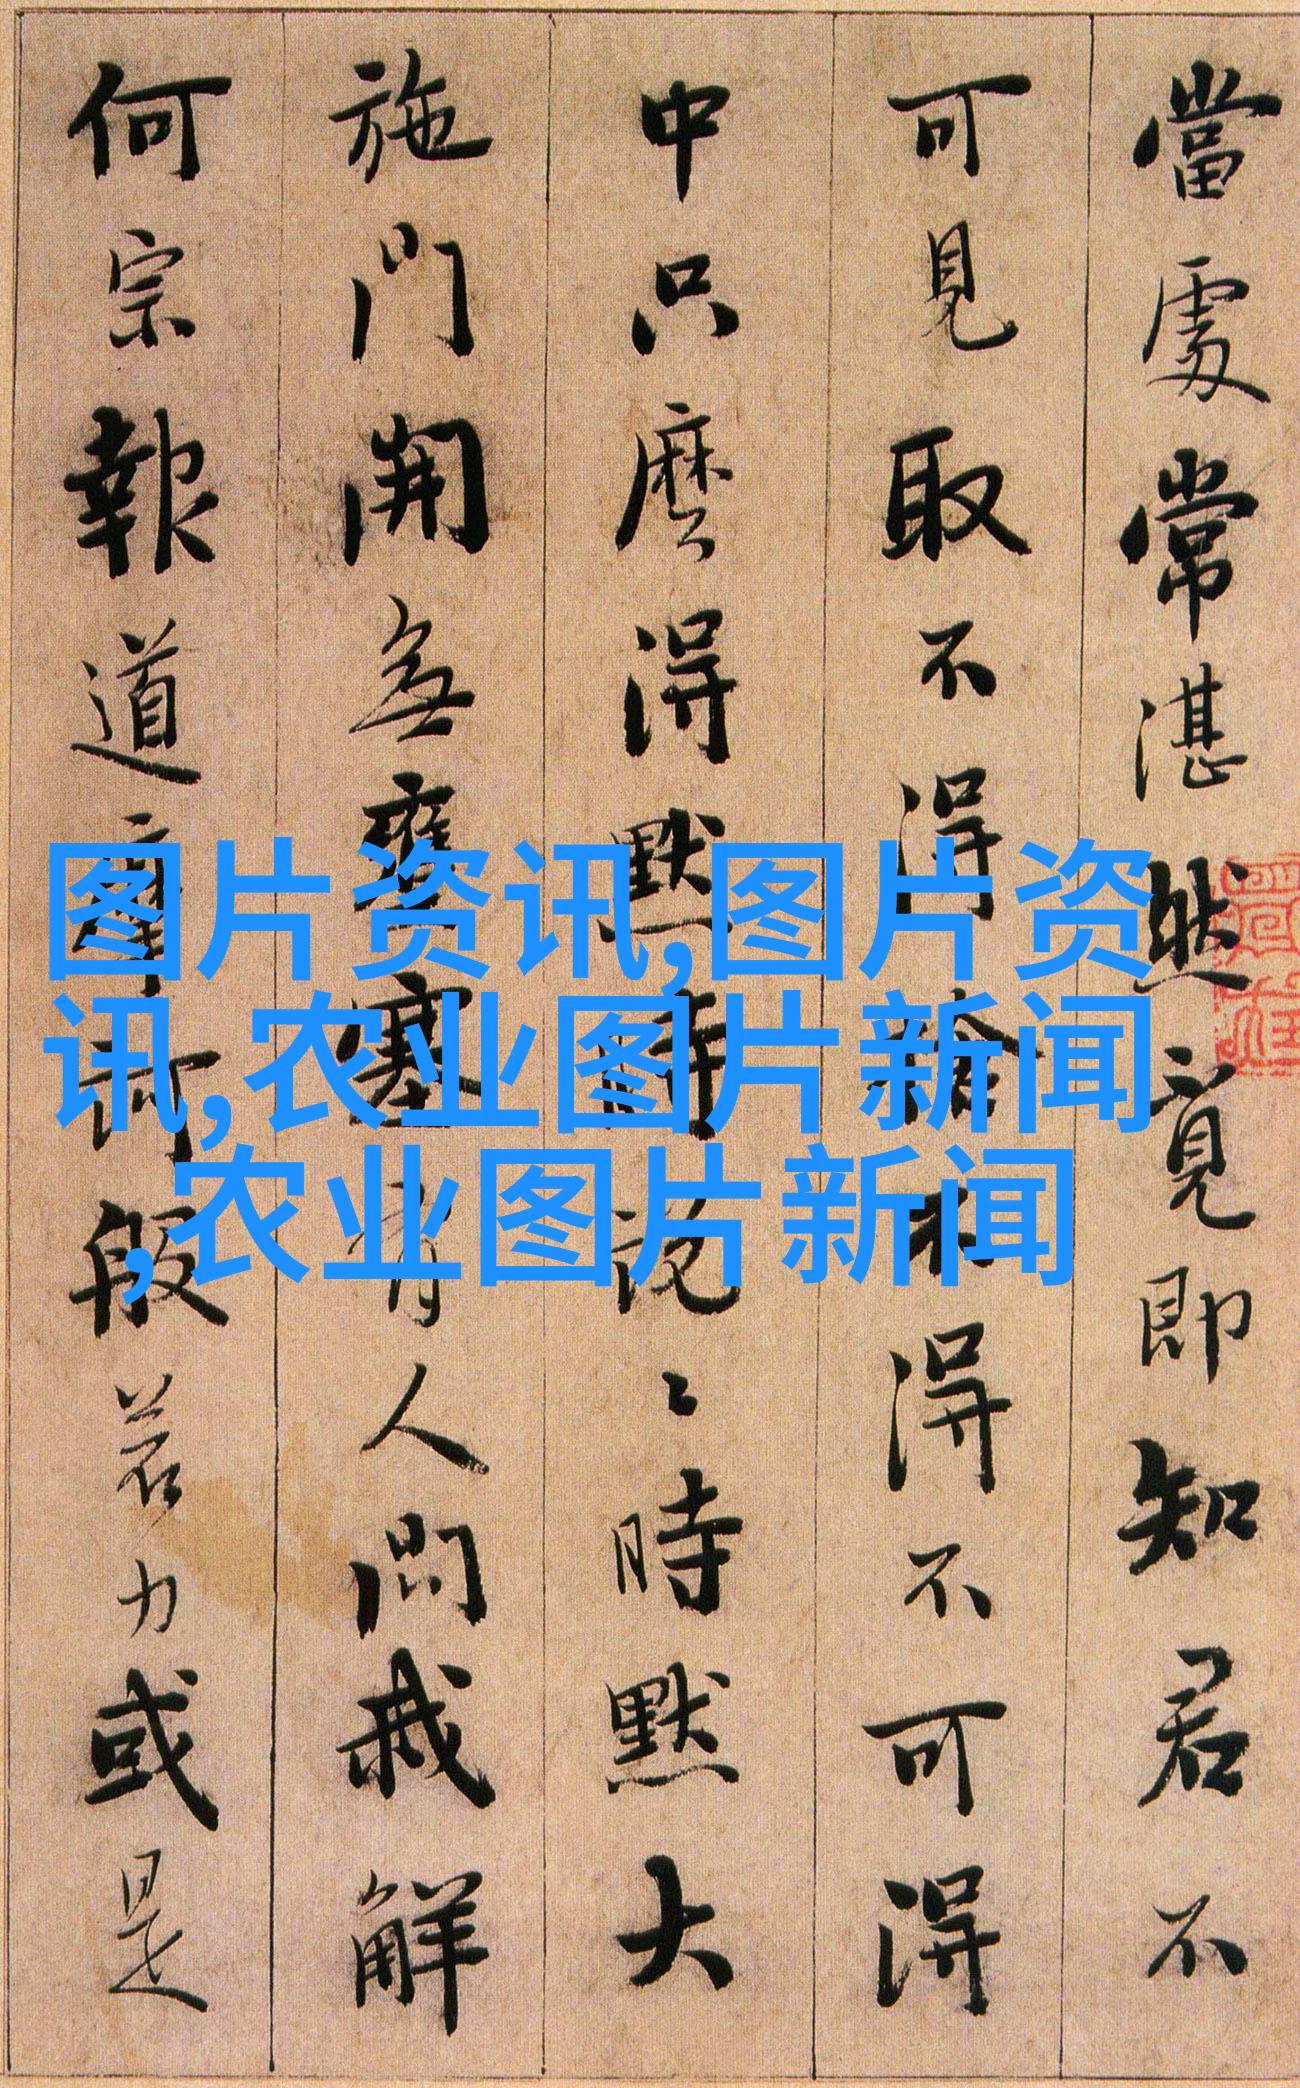 當處常湛然覓即知君不
可見取不得捨不得不可得
中只麼得默時說〻時默大
施門開無壅塞有人問我解
何宗報道摩訶般若力或是
图片资讯,图片资
讯,农业图片新闻
,农业图片新闻